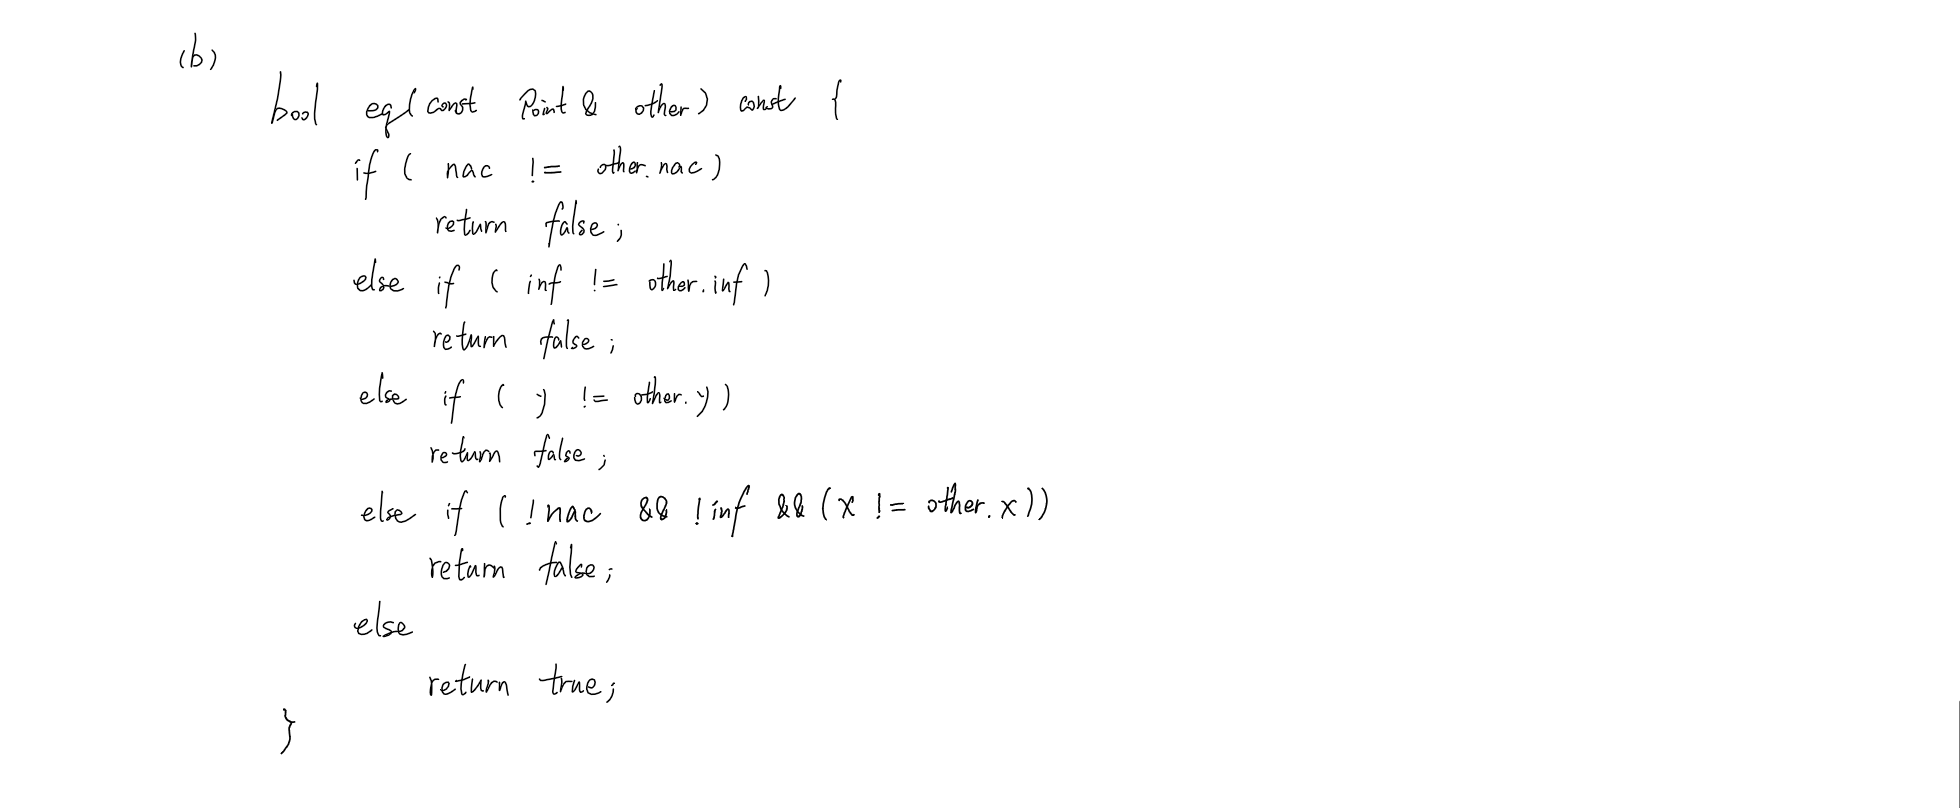 (b)
bool eq(const Point & other) const {
if ( nac != other.nac)
return false;
else if ( inf != other.inf )
return false;
else if ( y != other.y )
return false;
else if ( !nac && !inf && (x != other.x))
return false;
else
return true;
}